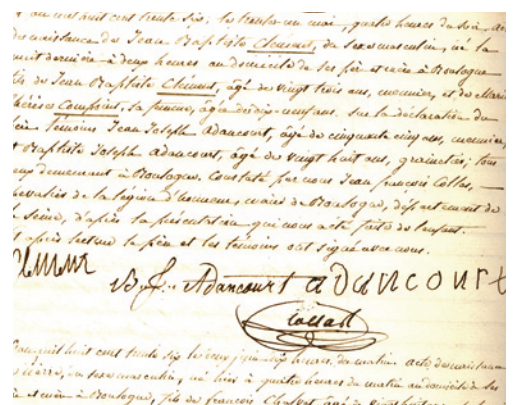 mil huit cent trente six, le trente un mai, quatre heures du soir, acte
de naissance de Jean Baptiste Clément, du sexe masculin, né la
nuit dernière à deux heures au domicile de ses père et mère à Boulogne
fils de Jean Baptiste Clément, âgé de vingt trois ans, meunier, et de Marie
Thérèse Compoint, sa femme, âgée de dix-neuf ans. Sur la déclaration du
père. Témoins Jean Joseph Adancourt, âgé de cinquante cinq ans, meunier,
et Baptiste Joseph Adancourt, âgé de vingt huit ans, grainetier; tous
deux demeurant à Boulogne. Constaté par nous Jean François Collas,
chevalier de la légion d'honneur, maire de Boulogne, département de
la Seine, d'après la présentation qui nous a été faite de l'enfant.
et après lecture le père et les témoins ont signé avec nous.
Clément
B. J. Adancourt adancourt
Collas
mil huit cent trente six le deux juin dix heures du matin acte de naissance
du sexe masculin, né hier à quatre heures du matin au domicile de ses
père et mère à Boulogne, fils de françois âgé de